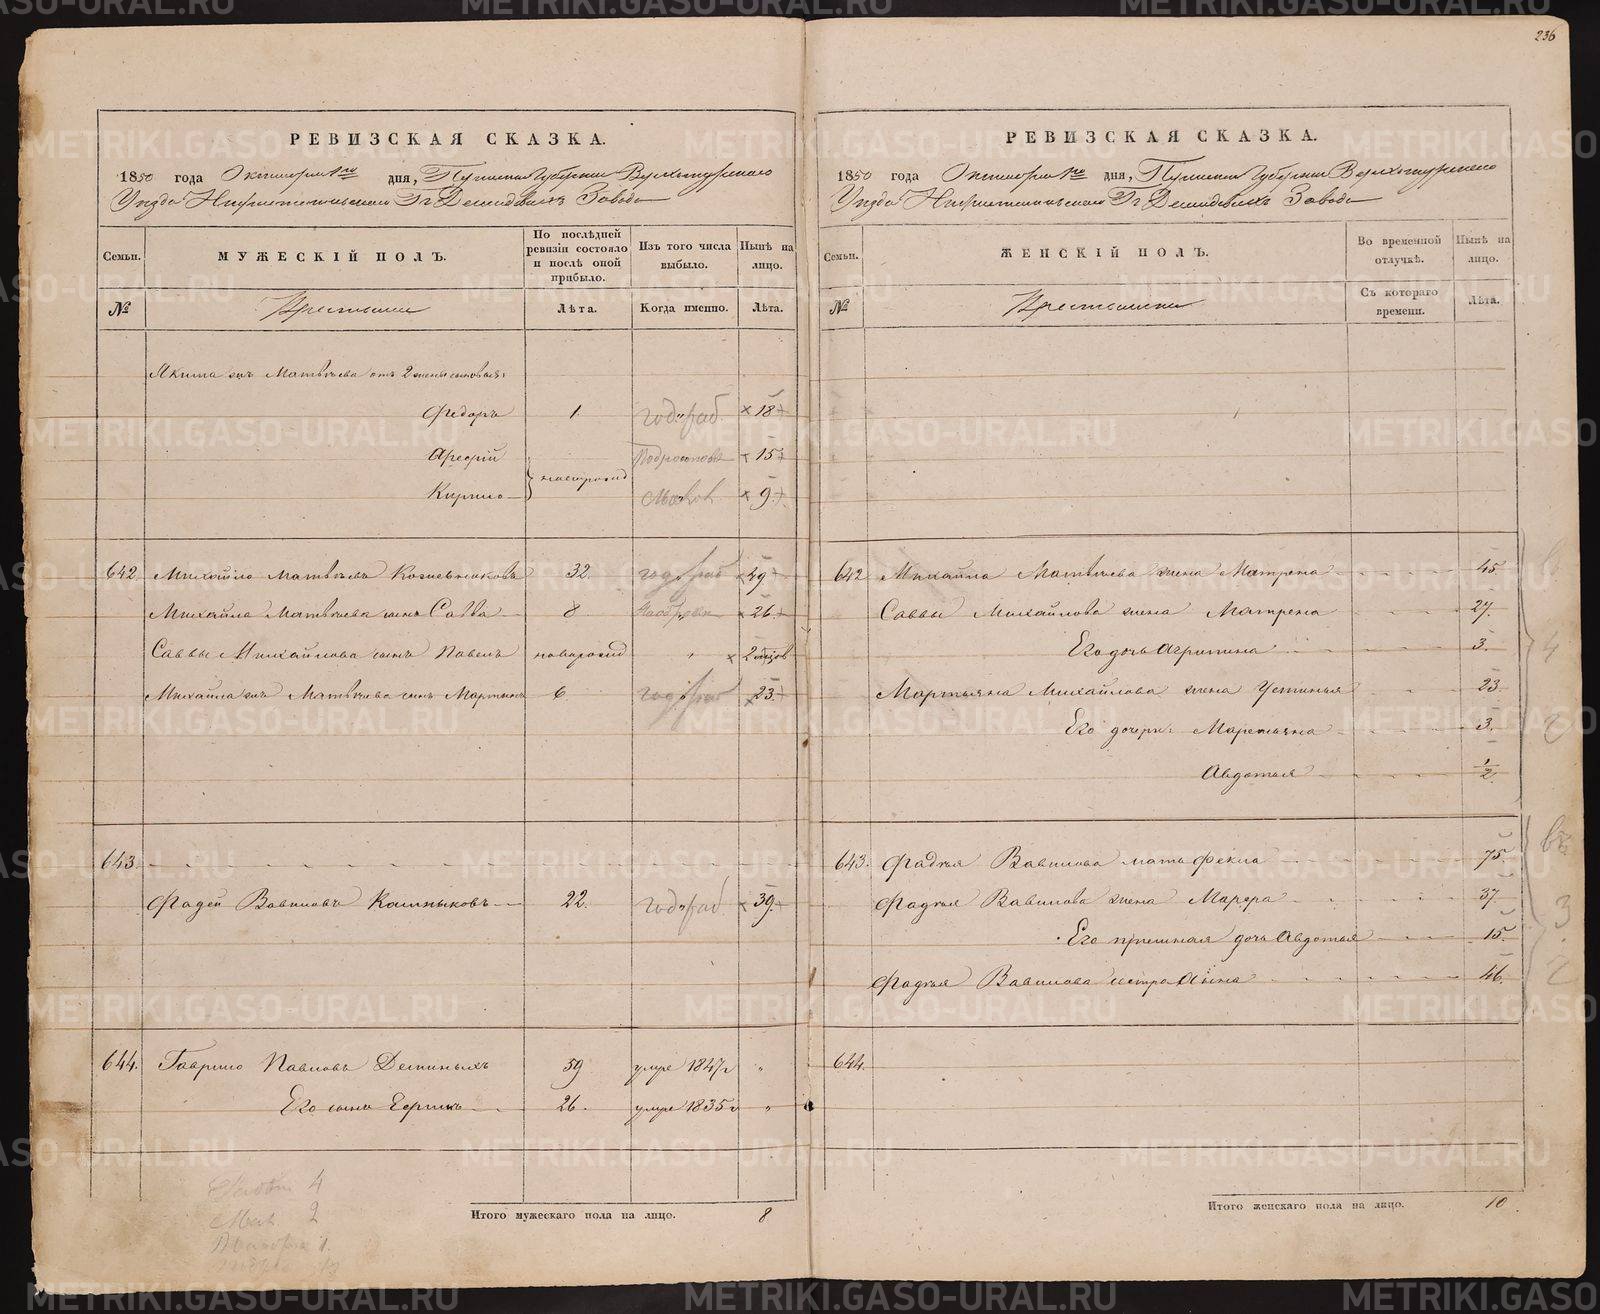 236
РЕВИЗСКАЯ СКАЗКА.
1850 года Октября 1го дня, Пермской Губернии Верхотурского
Уезда Нижнетагильского Гг Демидовых Завода
Семьи. МУЖЕСКІЙ ПОЛЪ. По послѣдней ревизіи состояло и послѣ оной прибыло. Изъ того числа выбыло. Нынѣ на лицо.
№ Крестьяне Лѣта. Когда именно. Лѣта.
Якима же Матвѣева отъ 2 жены сыновья:
Федоръ 1. год. раб. 18
Арефій новорожд Подростокъ 15
Кирило 9.
642. Михайло Матвѣевъ Кожевниковъ 32. год. раб 49
Михайла Матвѣева сынъ Савва 8 26
Саввы Михайлова сынъ Павелъ новорожд " 2
Михайла же Матвѣева сынъ Мартынъ 6. год. раб 23.
643.
Фадей Вавиловъ Кашныковъ 22. год. раб 39.
644. Гаврило Павловъ Деминыхъ 59 умре 1847г "
Его сынъ 26. умре 1835г "
4
Мал. 2
1.
Итого мужескаго пола на лицо. 8
РЕВИЗСКАЯ СКАЗКА.
1850 года Октября 1го дня, Пермской Губернии Верхотурского
Уезда Нижнетагильского Гг Демидовых Завода
Семьи. ЖЕНСКІЙ ПОЛЪ. Во временной отлучкѣ. Нынѣ на лицо.
№ Крестьянки Съ котораго времени. Лѣта.
642 Михайла Матвѣева жена Матрена 45
Саввы Михайлова жена Матрена 27.
Его дочь Агрипина 3.
4
Мартьяна Михайлова жена Устинья 23
Его дочери: Маремьяна 3.
2
Авдотья 1/2
643. Фадѣя Вавилова мать Фекла 75.
Фадѣя Вавилова жена Марфа 37
3
Его дочь Авдотья 15.
Фадѣя Вавилова сестра Анна 46.
2
644.
Итого женскаго пола на лицо. 10.
METRIKI.GASO-URAL.RU